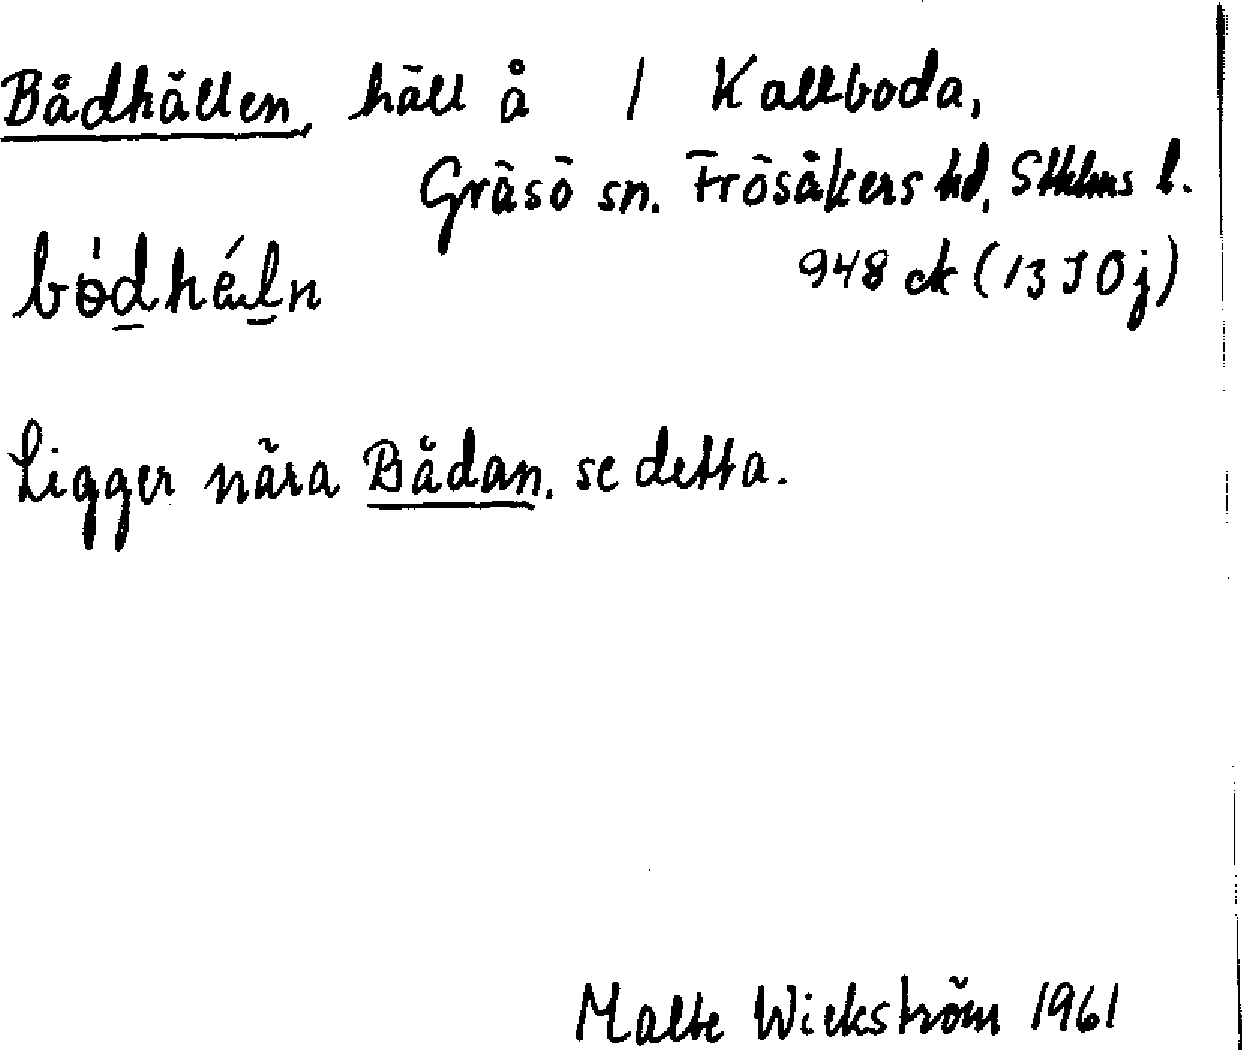 Bådhällen, häll å / Kallboda,
Gräsö sn. Frösåkers hd, Sthlms l.
bǿdhéln 948 ck (13 I 0 j)
Ligger nära Bådan, se detta.
Malte Wickström 1961